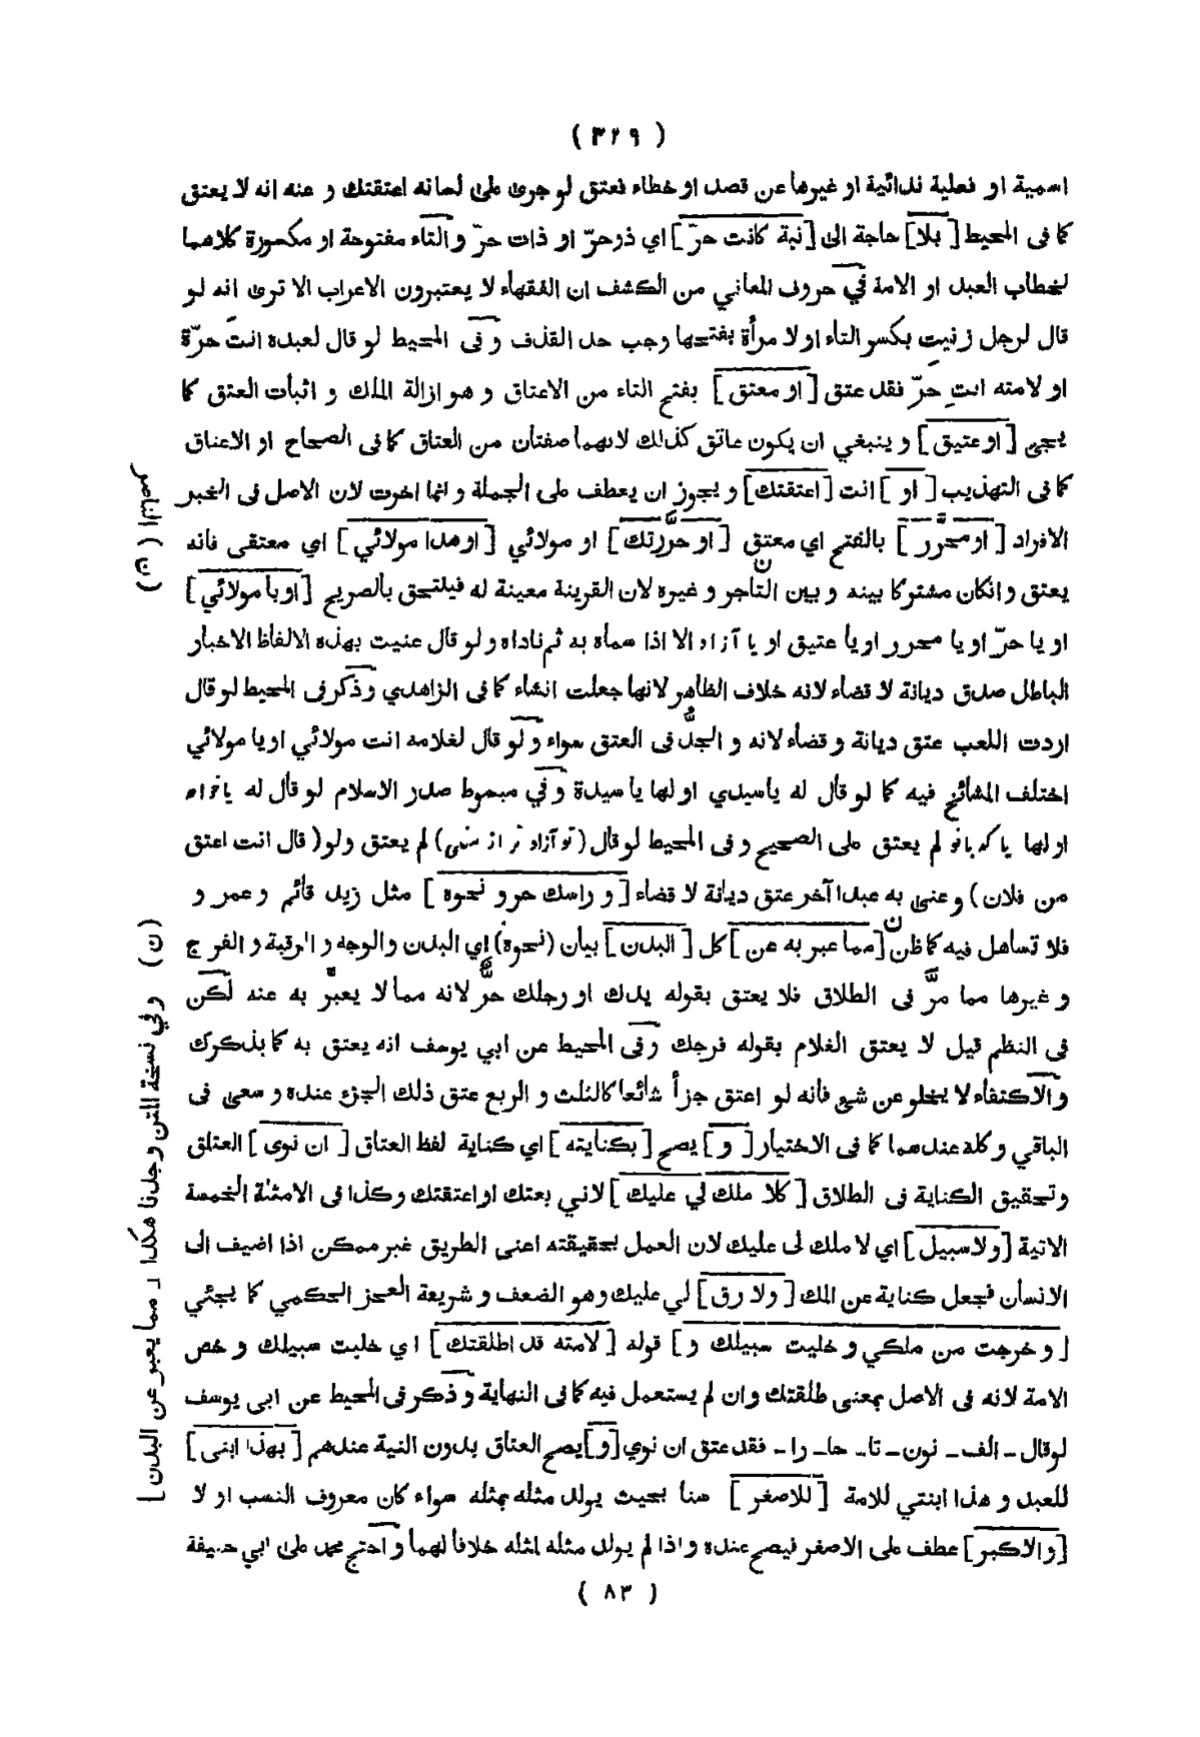 ( ٣٢٩ )
اسمية او فعلية ندائية او غيرها عن قصد او خطاء فعتق لو جرى على لسانه اعتقتك و عنه انه لا يعتق
كما فى المحيط [بلا] حاجة الى [نية كانت حرّ] اي ذو حرّ او ذات حرّ والتاء مفتوحة او مكسورة كلاهما
لخطاب العبد او الامة في حروف المعاني من الكشف ان الفقهاء لا يعتبرون الاعراب الا ترى انه لو
قال لرجل زنيتِ بكسر التاء او لا مرأة بفتحها وجب حد القذف وفى المحيط لو قال لعبده انتَ حرّة
او لامته انتِ حرّ فقد عتق [او معتق] بفتح التاء من الاعتاق و هو ازالة الملك و اثبات العتق كما
يجى [او عتيق] و ينبغي ان يكون عاتق كذلك لانهما صفتان من العتاق كما فى الصحاح او الاعتاق
كما فى التهذيب [او] انت [اعتقتك] و يجوز ان يعطف على الجملة و انما اخرت لان الاصل فى الخبر
الافراد [او محرَّر] بالفتح اي معتق [او حرَّرتك] او مولائي [او هذا مولائي] اي معتقى فانه
يعتق و انكان مشتركا بينه و بين التاجر و غيره لان القرينة معينة له فيلتحق بالصريح [او يا مولائي]
او يا حرّ او يا محرر او يا عتيق او يا آزاد الا اذا سماه به ثم ناداه ولو قال عنيت بهذه الالفاظ الاخبار
الباطل صدق ديانة لا قضاء لانه خلاف الظاهر لانها جعلت انشاء كما فى الزاهدي وذكر فى المحيط لو قال
اردت اللعب عتق ديانة و قضاء لانه و الجدُّ فى العتق سواء ولو قال لغلامه انت مولائي او يا مولائي
اختلف المشائخ فيه كما لو قال له ياسيدي او لها يا سيدة وفي مبسوط صدر الاسلام لو قال له يا خواه
او لها يا كدبانو لم يعتق على الصحيح و فى المحيط لو قال (تو آزاد تر از منى) لم يعتق ولو( قال انت اعتق
من فلان) و عنى به عبدا آخر عتق ديانة لا قضاء [و راسك حر و نحوه] مثل زيد قائم و عمر و
فلا تساهل فيه كما ظن [مما عبر به عن] كل [البدن] بيان (نحوه) اي البدن والوجه و الرقبة و الفرج
و غيرها مما مرَّ فى الطلاق فلا يعتق بقوله يدك او رجلك حرٌّ لانه مما لا يعبَّر به عنه لكن
فى النظم قيل لا يعتق الغلام بقوله فرجك وفى المحيط عن ابي يوسف انه يعتق به كما بذكرك
والاكتفاء لا يخلو عن شي فانه لو اعتق جزأ شائعا كالثلث و الربع عتق ذلك الجزء عنده و سعى فى
الباقي و كله عندهما كما فى الاختيار [و] يصح [بكنايته] اي كناية لفظ العتاق [ان نوى] العتق
وتحقيق الكناية فى الطلاق [كلا ملك لي عليك] لاني بعتك او اعتقتك وكذا فى الامثلة الخمسة
الاتية [ولاسبيل] اي لا ملك لى عليك لان العمل بحقيقته اعنى الطريق غير ممكن اذا اضيف الى
الانسان فجعل كناية عن الملك [ولا رق] لي عليك وهو الضعف و شريعة العجز الحكمي كما يجئي
[و خرجت من ملكي و خليت سبيلك و] قوله [لامته قد اطلقتك] اي خليت سبيلك و خص
الامة لانه فى الاصل بمعنى طلقتك وان لم يستعمل فيه كما فى النهاية وذكر فى المحيط عن ابى يوسف
لو قال ـ الف ـ نون ـ تا ـ حا ـ را ـ فقد عتق ان نوي [و] يصح العتاق بدون النية عندهم [بهذا ابنى]
للعبد و هذا ابنتي للامة [للاصغر] سنا بحيث يولد مثله بمثله سواء كان معروف النسب او لا
[والاكبر] عطف على الاصغر فيصح عنده و اذا لم يولد مثله لمثله خلافا لهما واحتج محمد على ابي حنيفة
( ٨٣ )
(ن) الناصر
(ن) وفي نسخة المتن وجدنا هكذا ـ مما يعبر عن البدن]